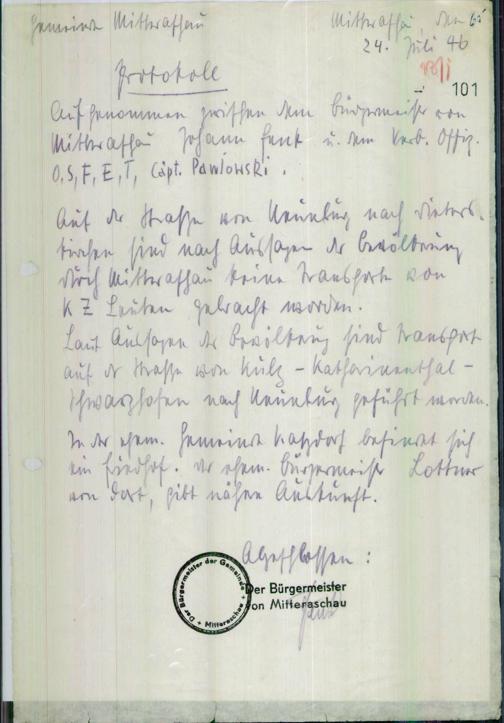 Gemeinde Mitteraschau Mitteraschau, den
24. Juli 46
101
Protokoll
Aufgenommen zwischen dem Bürgermeister von
Mitteraschau Johann Fenk u. dem Verb. Offiz.
O,S,F,E,T, Cäpt. Pawlowski.
Auf der Strasse von Neunburg nach Dieters-
kirchen sind nach Aussagen der Bevölkerung
durch Mitteraschau keine Transporte von
K Z Leuten gebracht worden.
Laut Aussagen der Bevölkerung sind Transport
auf der Strasse von Kulz - Katharinenthal -
Schwarzhofen nach Neunburg geführt worden.
In der ehem. Gemeinde Katzdorf befindet sich
ein Friedhof. der ehem. Bürgermeister Lottner
von dort, gibt nähere Auskunft.
Abgeschlossen:
Der Bürgermeister der Gemeinde
+ Mitteraschau +
Der Bürgermeister
von Mitteraschau
Fenk